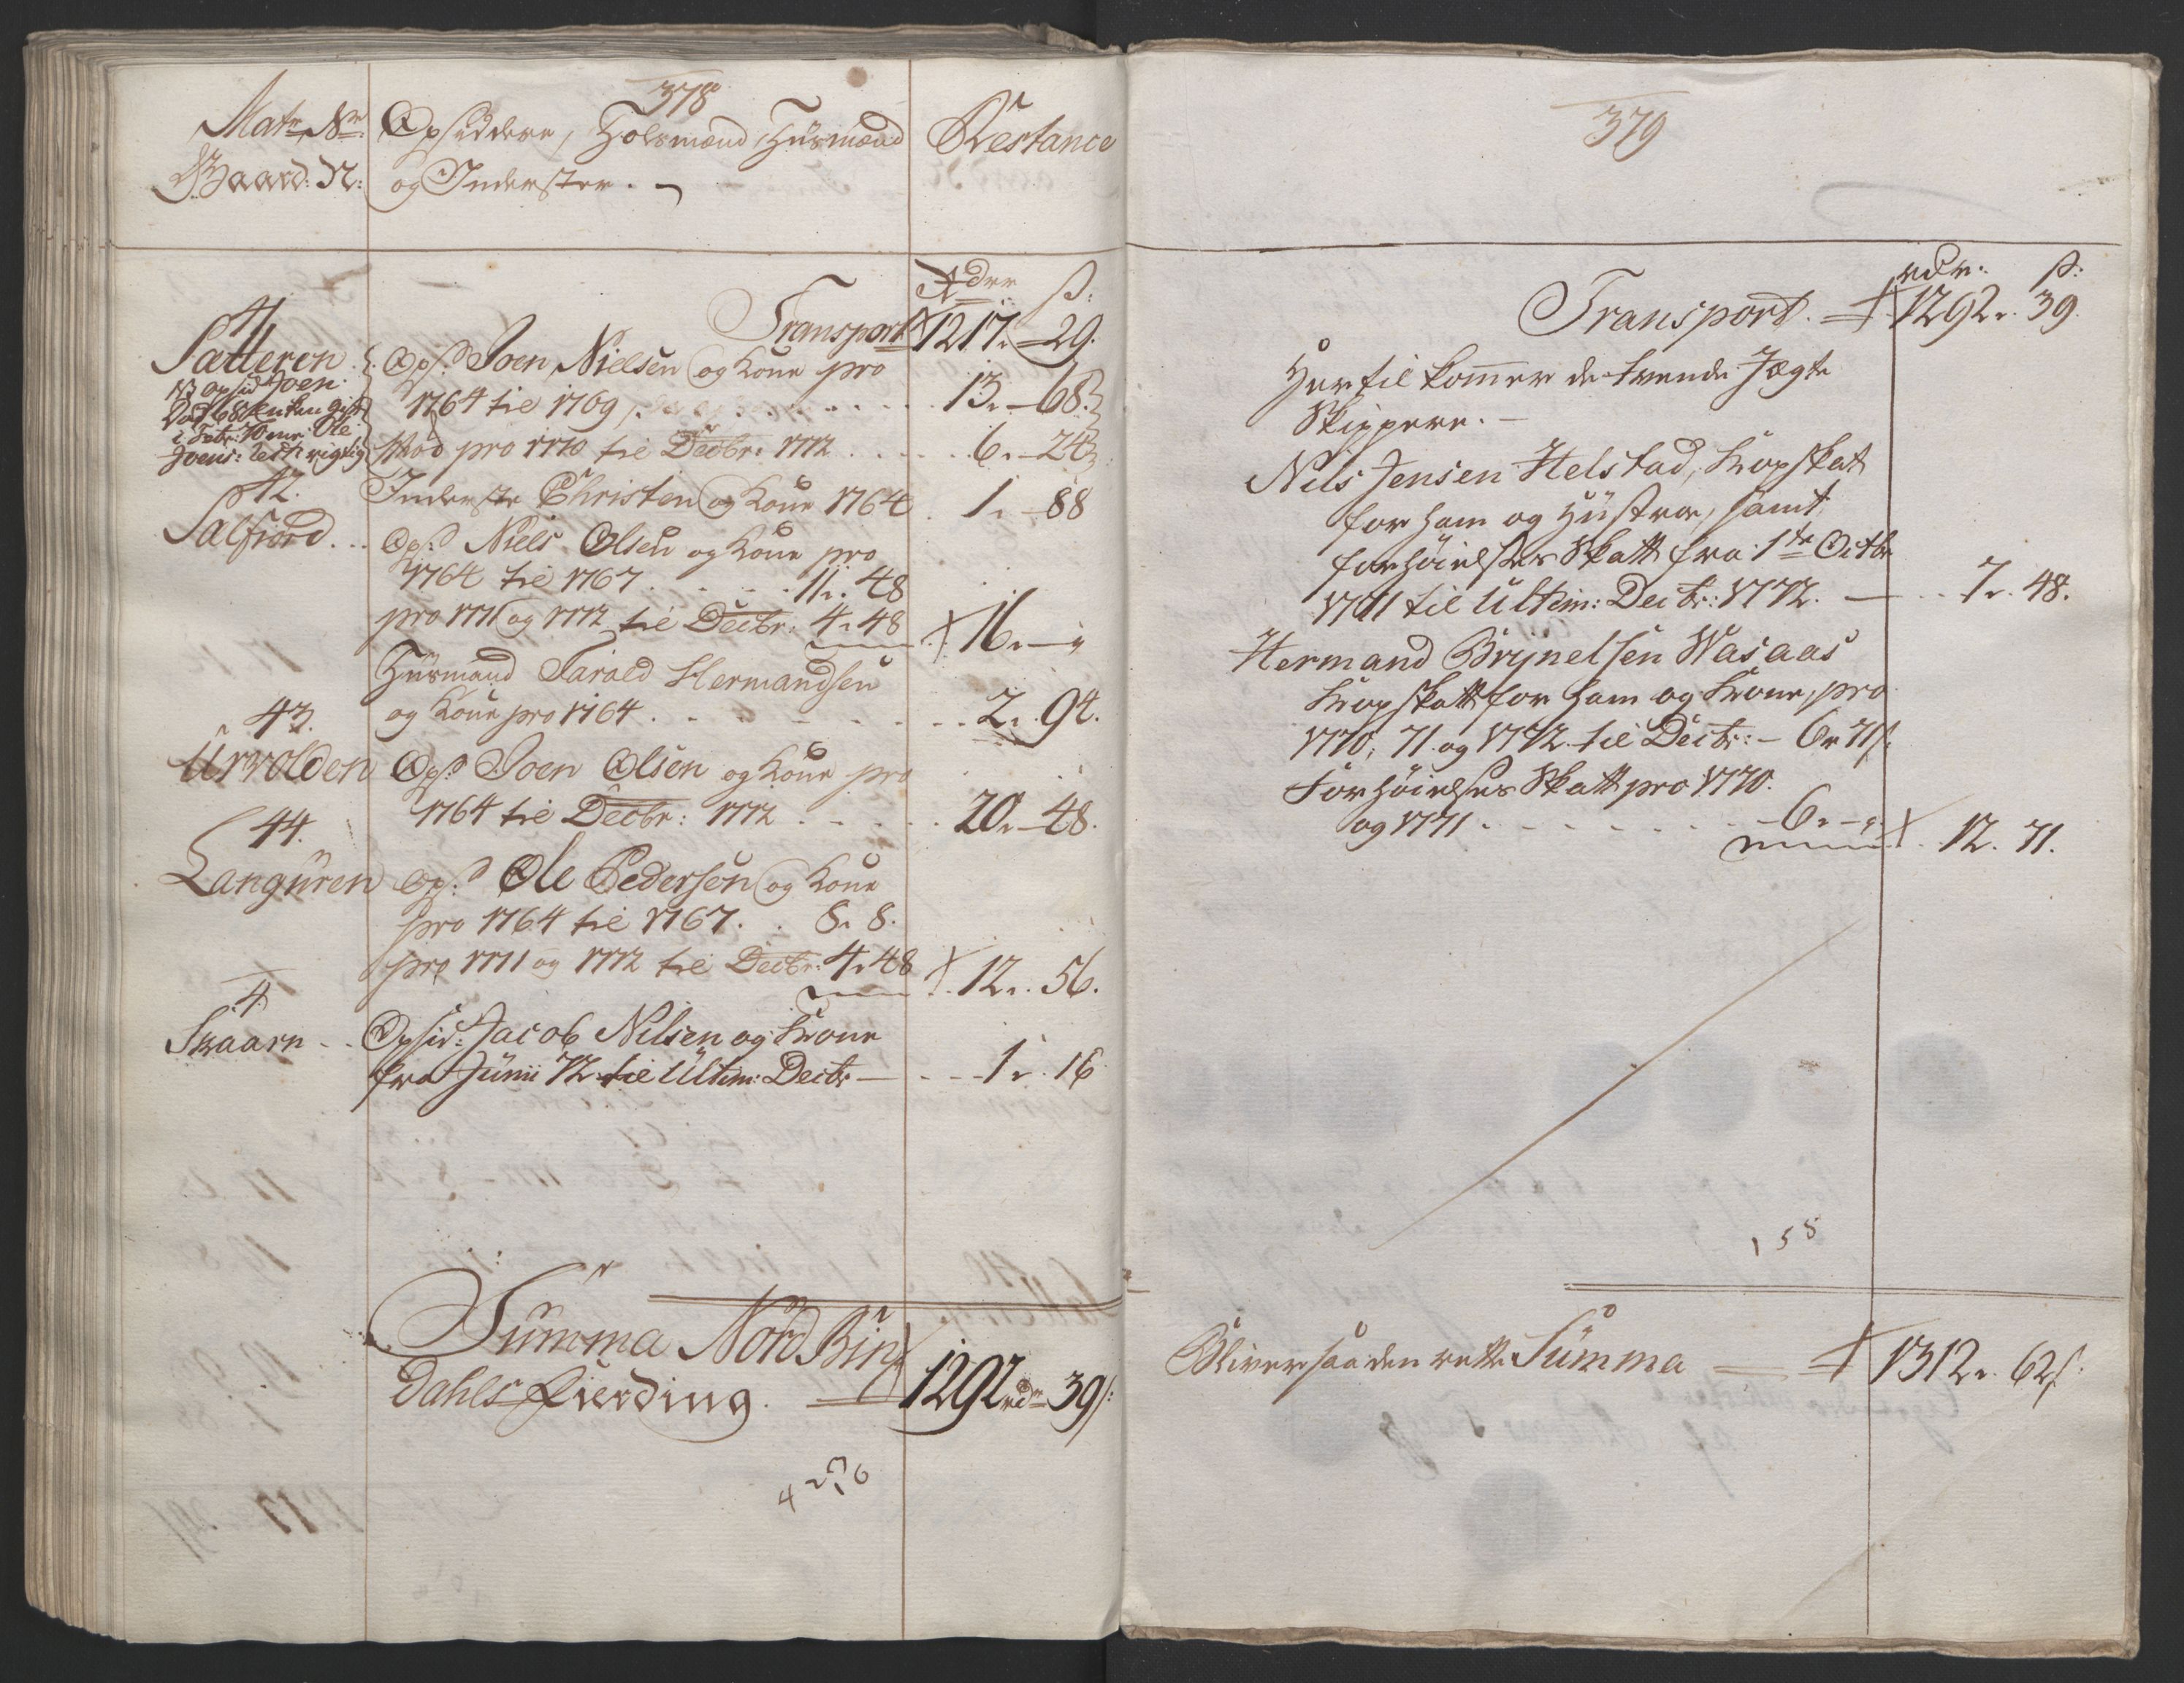 378
Matr: Nr: Opsiddere, Folsmænd Huusmænd Restance
Gaard: N: og Inderster.
Rdrr ß:
Transport 1217 „ 29.
41
Sætteren Ops: Joen Nielsen og Kone pro
NB opsid: Joen 1764 til 1769 . . . . 13 „ 68
Død 68 Enken gift
i Febr: 70 mr: Ole
Joens: rigtig Død pro 1770 til Decbr: 1772 . . . 6 „ 24
42. Inderste Christen og Kone 1764 . 1 „ 88
Salfiord . . Ops: Niels Olsen og Kone pro
1764 til 1767 . . . . 11 „ 48
pro 1771 og 1772 til Decbr: 4 „ 48 16 „ „
Huusmand Tarald Hermandsen
og Kone pro 1764 . . . . 2 „ 94.
43.
Urvolden Ops: Joen Olsen og Kone pro
1764 til Decbr: 1772 . . . . 20 „ 48.
44.
Languren Ops: Ole Pedersen og Kone
pro 1764 til 1767 . . 8 „ 8.
pro 1771 og 1772 til Decbr: 4 „ 48 12 „ 56.
4.
Skaarn . . Opsid: Jacob Nilsen og Kone
fra Junii 72 til Ultim: Decbr — . . 1 „ 16
Summa Nord Bin
Dahls Fierding. 1292 rdr 39 ß:
379
rdr: ß:
Transport. 1292 „ 39.
Hertil kommer de tvende Jægte
Skippere. —
Nils Jensen Helstad, Kopskat
for ham og Hustrue, samt
forhøielses Skatt fra 1te Octbr
1771 til Ultim: Decbr: 1772. — . . 7 „ 48.
Hermand Brynelsen Wasaas
Kopskatt for ham og Kone, pro
1770, 71 og 1772 til Decbr: — 6 „ 71 ß.
Forhøielses Skatt pro 1770.
og 1771 . . . . . 6 „ — „ 12 „ 71.
158
Bliver saa den rette Summa — 1312 „ 62 ß.